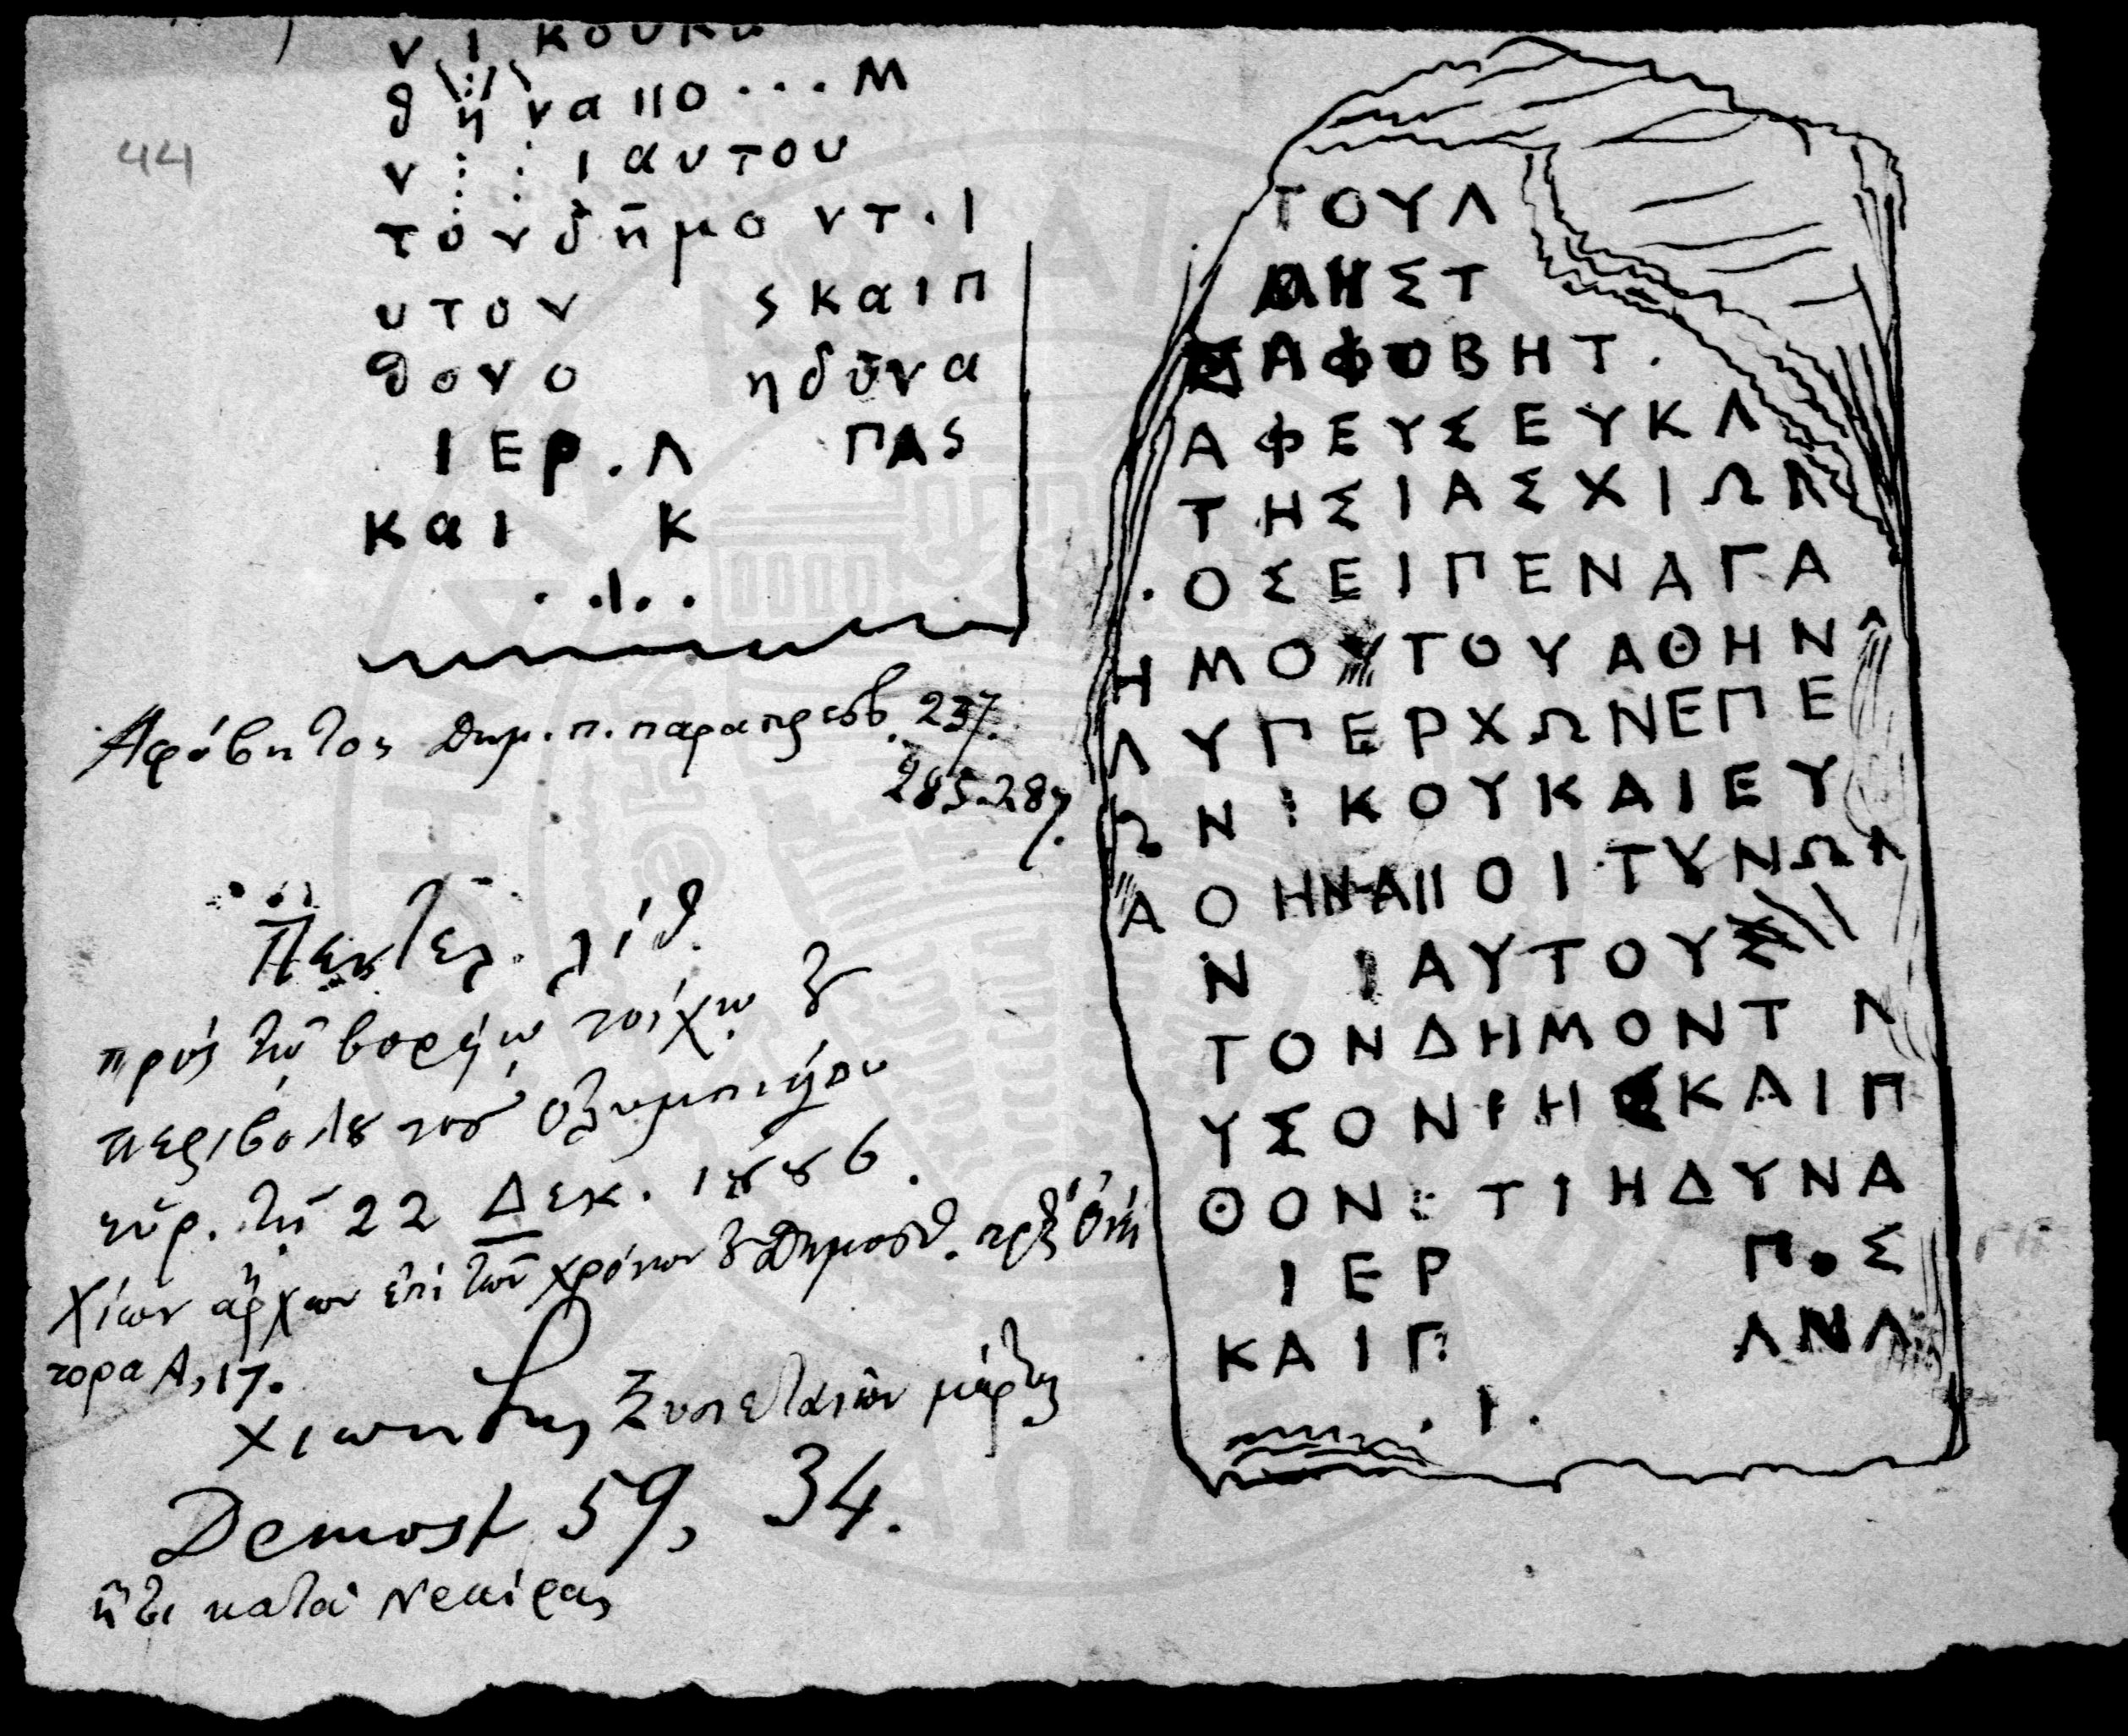 44
θ η ν α ι ι ο . . . Μ
ν ι α υ τ ο υ
τ ο ν δ ῆ μ ο ν τ . ι
υ τ ο ν ς κ α ι π
θ ο ν ο η δ ῦ ν α
Ι Ε Ρ . Λ Π Α ς
κ α ι κ
. . ι . .
Ἀφόβητος Δημ. π. παραπρεσβ. 237.
285-287.
Πεντελ. λίθ.
πρὸς τῷ βορείῳ τοίχῳ τοῦ
περιβόλου τοῦ Ὀλυμπιείου
εὑρ. τῇ 22 Δεκ. 1886.
Χίων ἄρχων ἐπὶ τῶν χρόνων τοῦ Δημοσθ.
τορα Α, 17.
Χιωνίδης Ξυπεταιὼν μάρτυς
Demost 59, 34.
κατὰ Νεαίρας
Τ Ο Υ Λ
Η Σ Τ
Α Φ Ο Β Η Τ .
Α Φ Ε Υ Σ Ε Υ Κ Λ
Τ Η Σ Ι Α Σ Χ Ι Ω Ν
. Ο Σ Ε Ι Π Ε Ν Α Γ Α
Η Μ Ο Υ Τ Ο Υ Α Θ Η Ν
Λ Υ Π Ε Ρ Χ Ω Ν Ε Π Ε
Ω Ν Ι Κ Ο Υ Κ Α Ι Ε Υ
Α Ο Η Ν Α Ι Ι Ο Ι Τ Υ Ν Ω Λ
Ν Ι Α Υ Τ Ο Υ Σ
Τ Ο Ν Δ Η Μ Ο Ν Τ Λ
Υ Σ Ο Ν Ι Η Σ Κ Α Ι Π
Θ Ο Ν Ε Τ Ι Η Δ Υ Ν Α
Ι Ε Ρ Π . Σ
Κ Α Ι Γ Λ Ν Λ
. Ι .